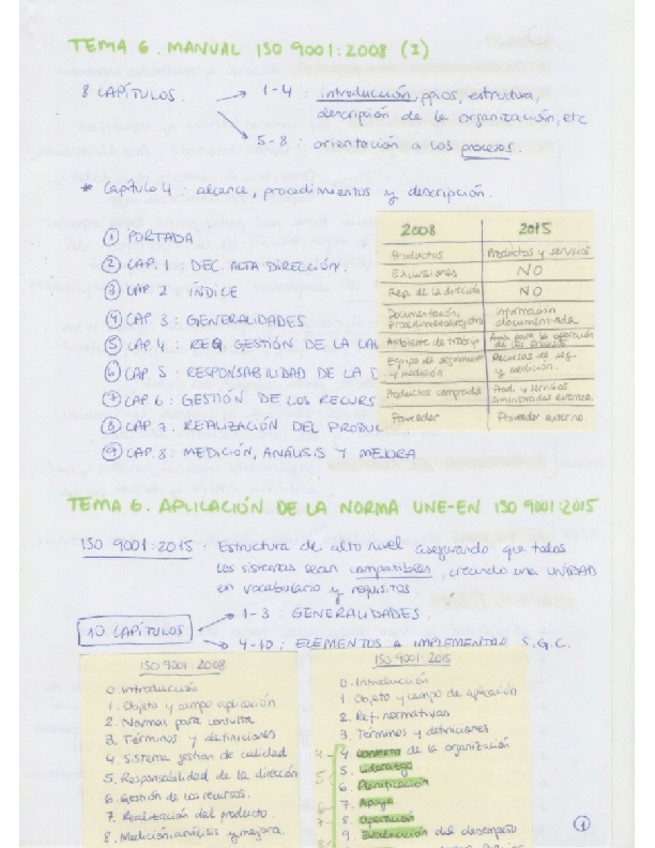 TEMA 6. MANUAL ISO 9001:2008 (I)
8 CAPÍTULOS. → 1-4 : introducción, ppios, estructura,
descripción de la organización, etc
→ 5-8 : orientación a los procesos.
* Capítulo 4 : alcance, procedimientos y descripción.
① PORTADA
② CAP. 1 : DEC. ALTA DIRECCIÓN.
③ CAP. 2 : ÍNDICE
④ CAP. 3 : GENERALIDADES
⑤ CAP. 4 : REQ. GESTIÓN DE LA CAL
⑥ CAP. 5 : RESPONSABILIDAD DE LA D
⑦ CAP. 6 : GESTIÓN DE LOS RECURS
⑧ CAP. 7 : REALIZACIÓN DEL PRODUC
⑨ CAP. 8 : MEDICIÓN, ANÁLISIS Y MEJORA
2008 2015
Productos Productos y servicios
Exclusiones NO
Rep. de la dirección NO
Documentación, Información
procedimiento, registro documentada
Ambiente de trabajo Amb. para la operación
de los procesos
Equipo de seguimiento Recursos de seg.
y medición y medición.
Productos comprados Prod. y servicios
suministrados externa.
Proveedor Proveedor externo.
TEMA 6. APLICACIÓN DE LA NORMA UNE-EN ISO 9001:2015
ISO 9001:2015 : Estructura de alto nivel asegurando que todos
los sistemas sean compatibles, creando una UNIDAD
en vocabulario y requisitos.
10 CAPÍTULOS → 1-3 : GENERALIDADES.
→ 4-10 : ELEMENTOS A IMPLEMENTAR S.G.C.
ISO 9001:2008
0. Introducción
1. Objeto y campo aplicación
2. Normas para consulta
3. Términos y definiciones
4. Sistema gestion de calidad
5. Responsabilidad de la dirección
6. Gestión de los recursos.
7. Realización del producto.
8. Medición, análisis y mejora.
ISO 9001:2015
0. Introducción
1. Objeto y campo de aplicación
2. Ref. normativas
3. Términos y definiciones
4. Contexto de la organización
5. Liderazgo
6. Planificación
7. Apoyo
8. Operación
9. Evaluación del desempeño
4
5
6
7
8
①